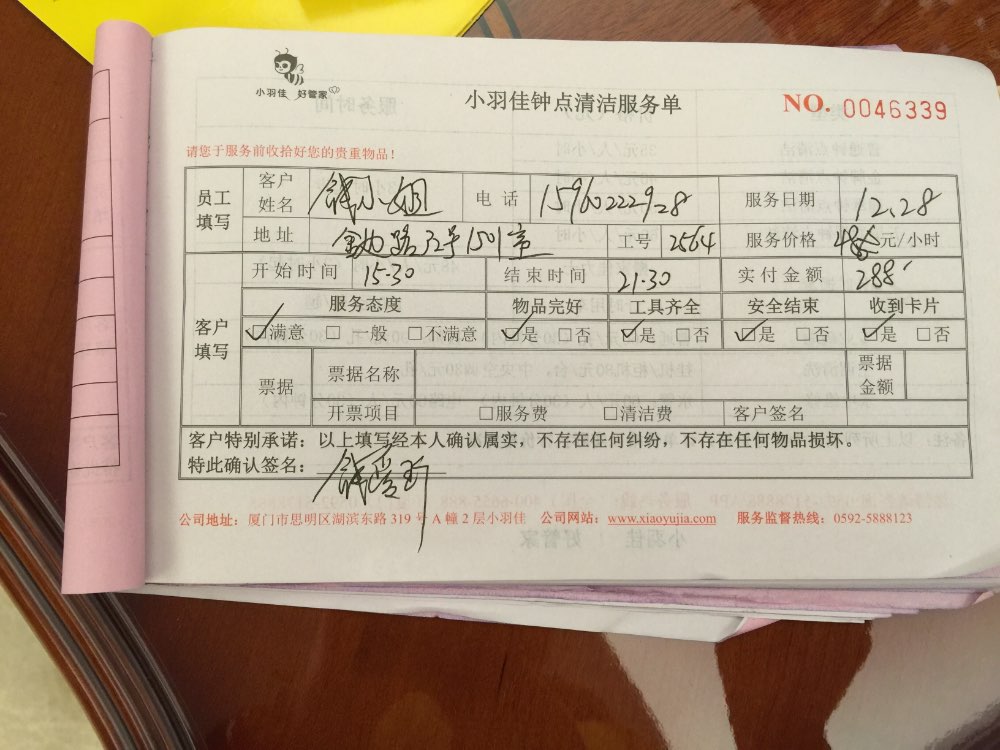 小羽佳 好管家
小羽佳钟点清洁服务单
NO. 0046339
请您于服务前收拾好您的贵重物品！
员工填写 客户姓名 钱小姐 电话 15960222928 服务日期 12.28
地址 路 号1501室 工号 2564 服务价格 元/小时
开始时间 15.30 结束时间 21.30 实付金额 288
客户填写 服务态度 物品完好 工具齐全 安全结束 收到卡片
☑满意 □一般 □不满意 ☑是 □否 ☑是 □否 ☑是 □否 ☑是 □否
票据 票据名称 票据金额
开票项目 □服务费 □清洁费 客户签名
客户特别承诺：以上填写经本人确认属实，不存在任何纠纷，不存在任何物品损坏。
特此确认签名：
公司地址：厦门市思明区湖滨东路 319 号 A 幢 2 层小羽佳 公司网站：www.xiaoyujia.com 服务监督热线：0592-5888123